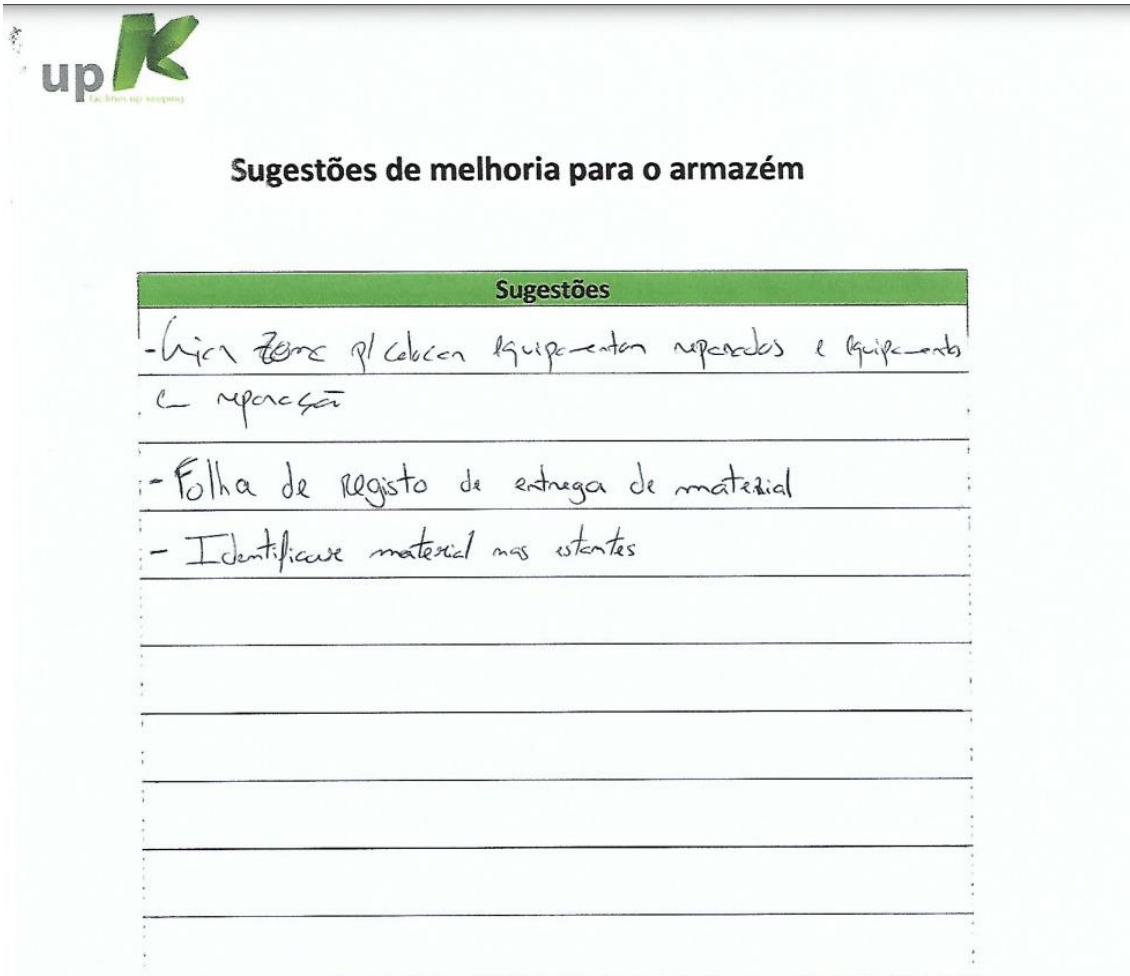 up K
facilities up keeping
Sugestões de melhoria para o armazém
Sugestões
- Criar zona p/ colocar equipamentos reparados e equipamentos
em reparação
- Folha de registo de entrega de material
- Identificar material nas estantes